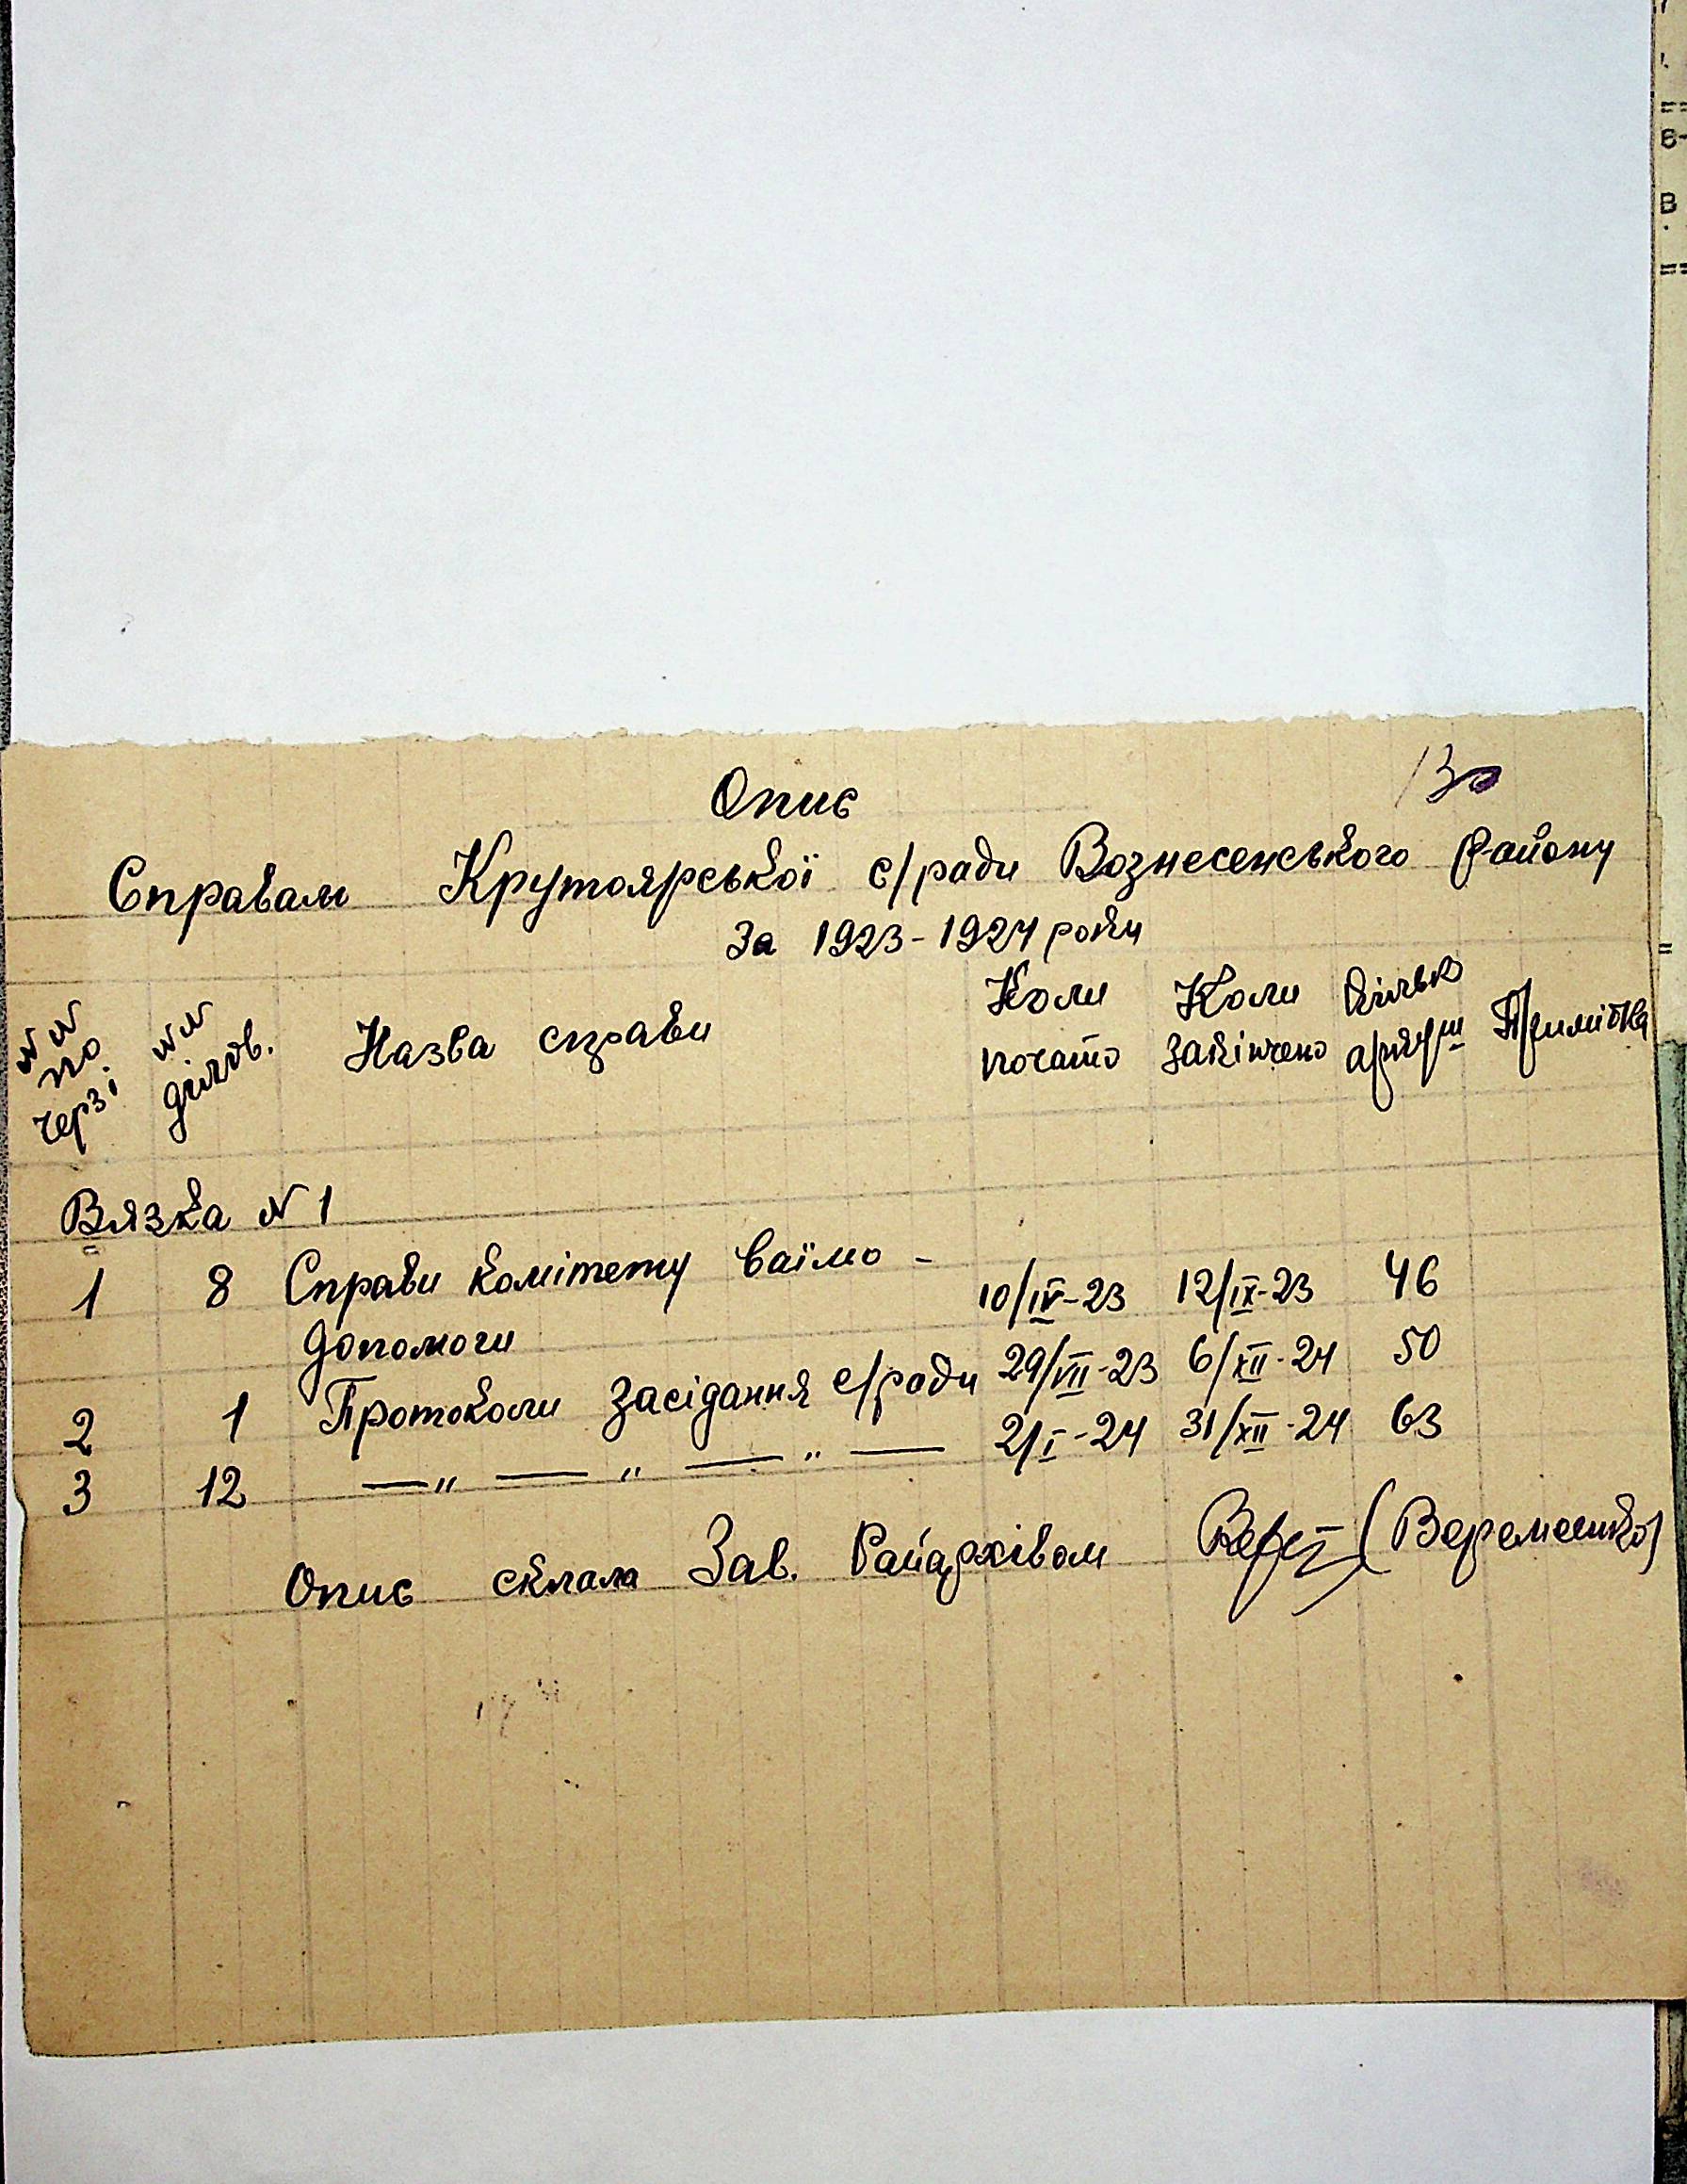 Опис
Справам Крутоярської с/ради Вознесенського району
За 1923-1924 роки
№№ по черзі №№ діло¬в. Назва справи Коли почато Коли закінчено Кілько аркуш Примітка
Вязка №1
1 8 Справи комітету ваїмо - 10/IV-23 12/IX-23 46
допомоги
2 1 Протоколи засідання с/ради 29/VII-23 6/XII-24 50
3 12 —„ — „ — „ — 2/I-24 31/XII-24 63
Опис склала Зав. Райархівом (Веременко)